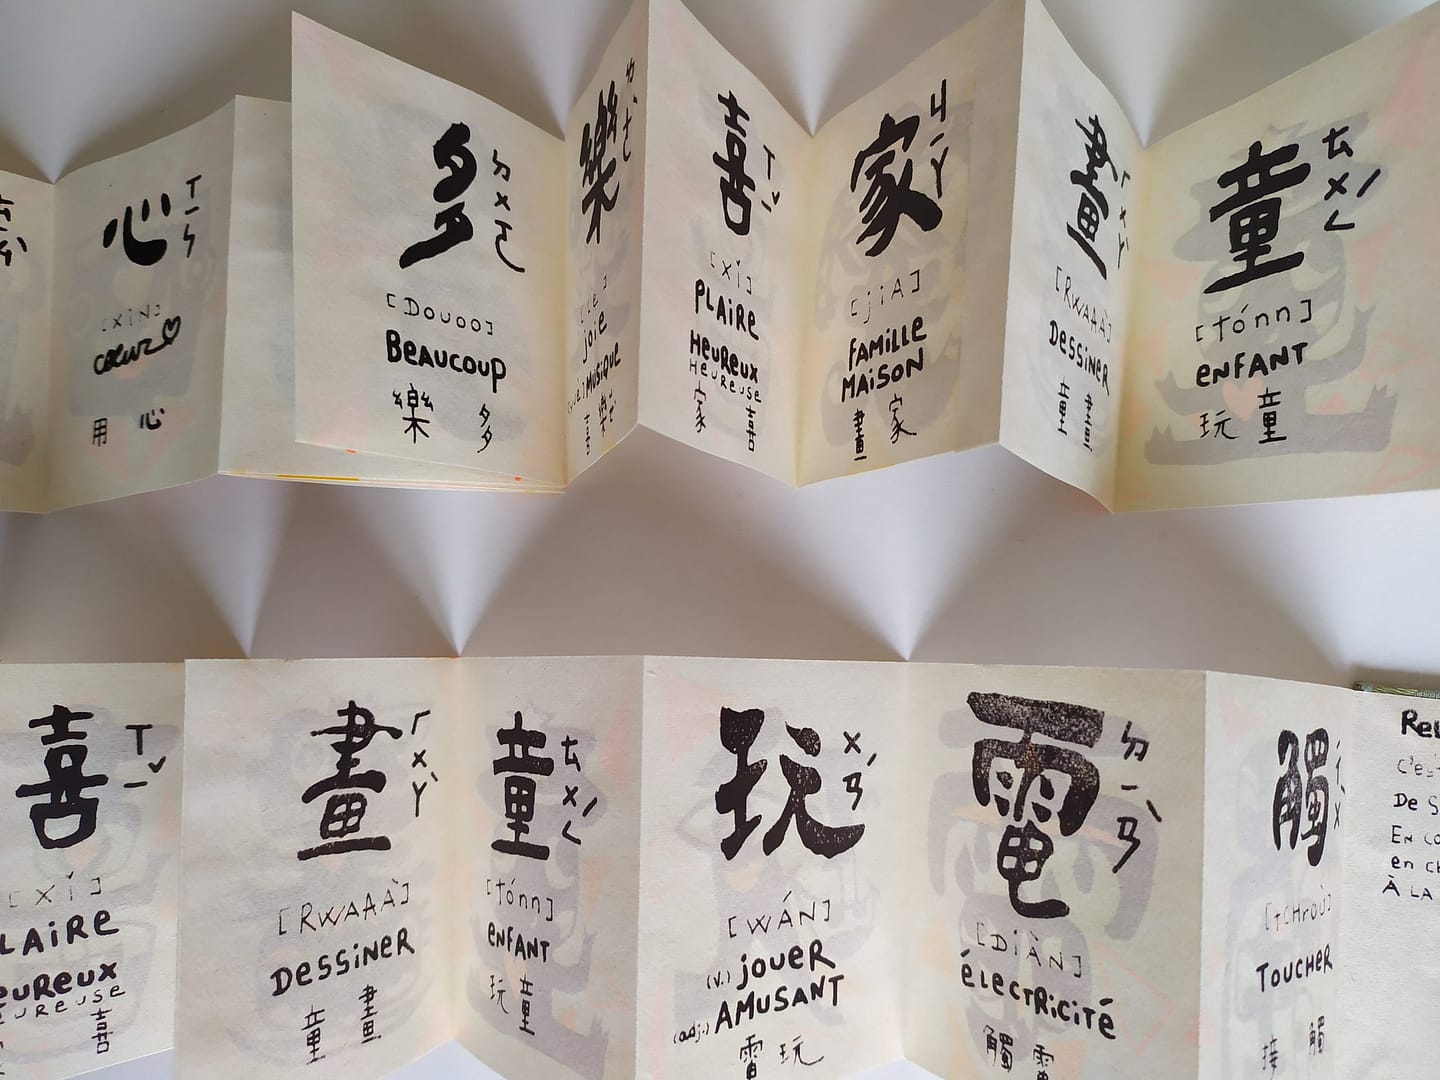 心
ㄒㄧㄣ
[XiN]
cœur♡
用 心
多
ㄉㄨㄛ
[Douoo]
BeAUCOUP
樂 多
樂
ㄌㄜˋ
joie
MUSiQUE
喜 樂
喜
ㄒㄧˇ
[xǐ]
PLAiRe
HeUReUX
HeUReUSe
家 喜
家
ㄐㄧㄚ
[jiA]
FAMiLLe
MAiSON
畫 家
畫
ㄏㄨㄚˋ
[RWAAÀ]
DeSSiNeR
童 畫
童
ㄊㄨㄥˊ
[tónn]
eNFANT
玩 童
喜
ㄒㄧˇ
[xǐ]
LAiRe
eUReUX
eUReUSe
喜
畫
ㄏㄨㄚˋ
[RWAAÀ]
DeSSiNeR
童 畫
童
ㄊㄨㄥˊ
[tónn]
eNFANT
玩 童
玩
ㄨㄢˊ
[WÁN]
(v.) jOUeR
(adj.) AMUSANT
電 玩
電
ㄉㄧㄢˋ
[DiÀN]
éLeCTRiCiTé
觸 電
觸
[tCHroù]
TOUCHeR
接 觸
C'es
De S
À LA